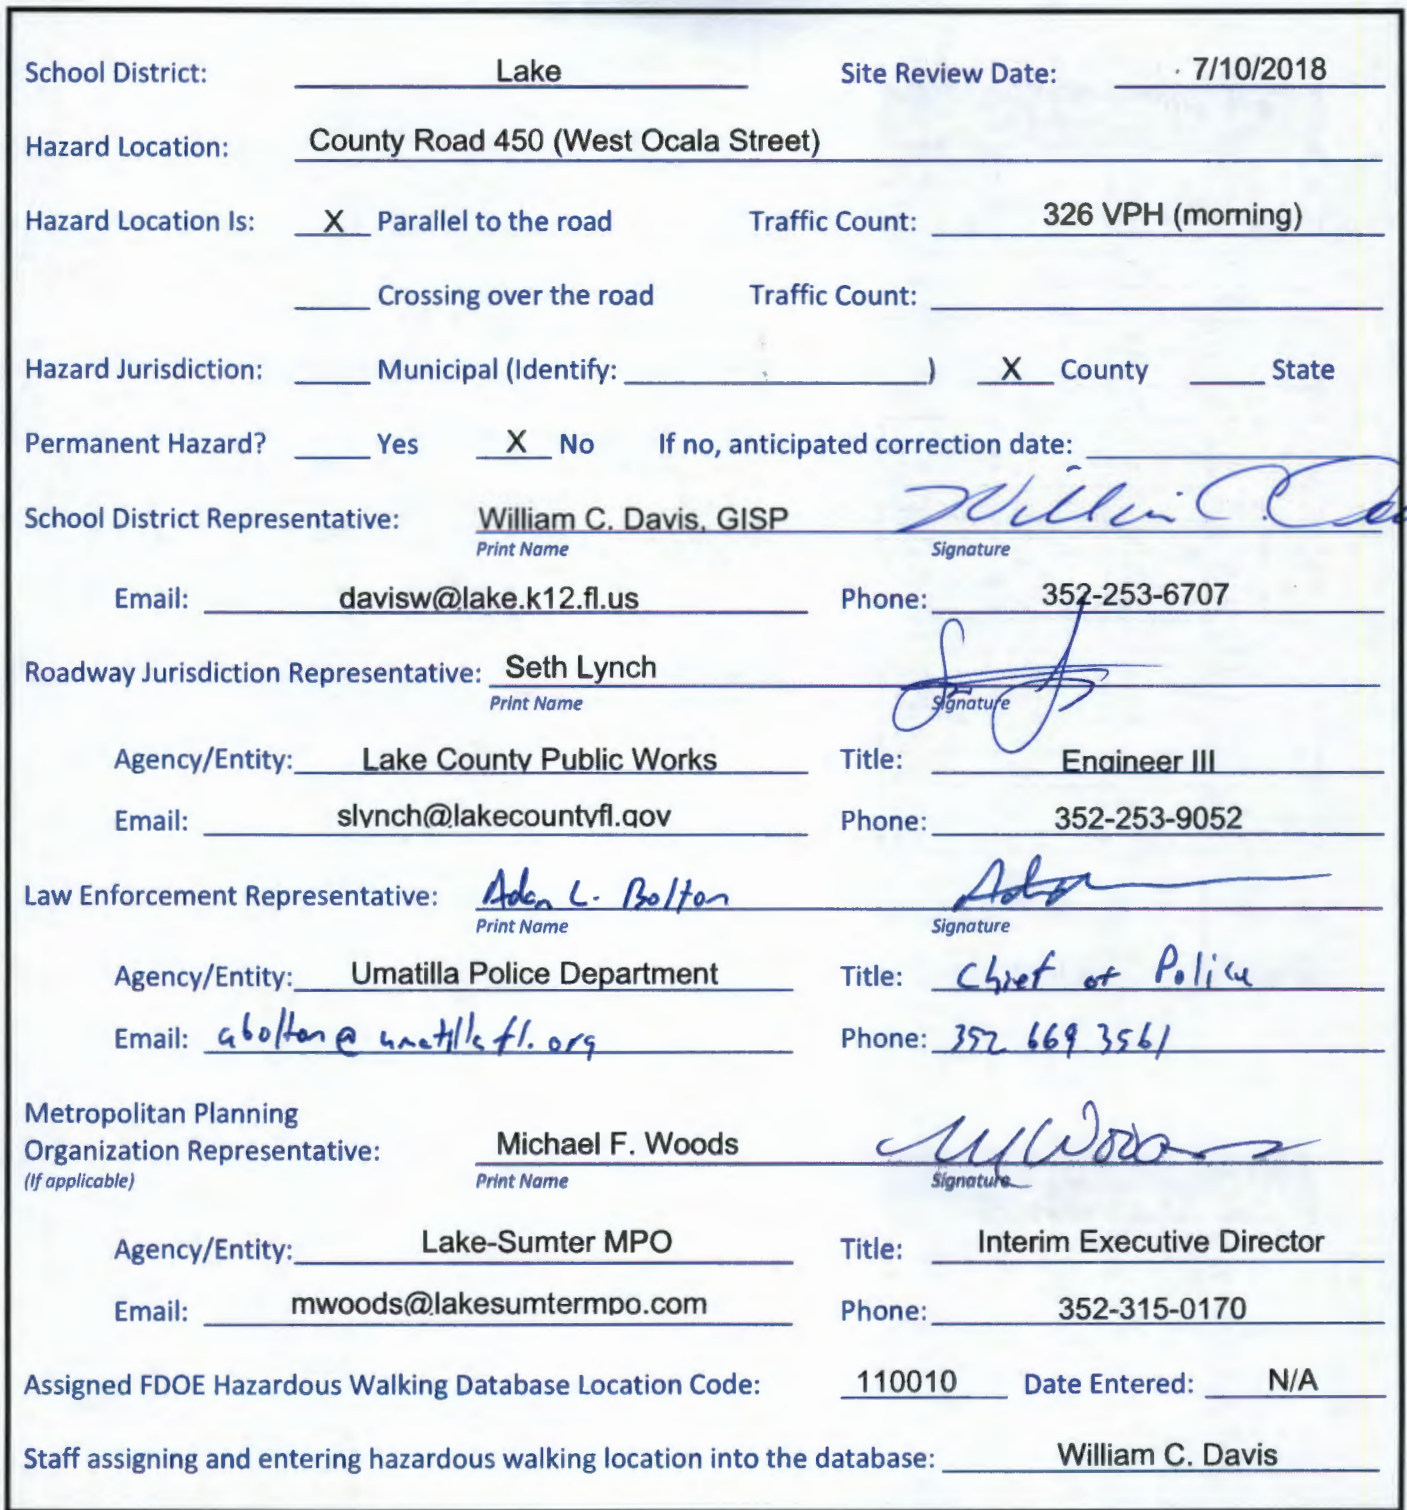 School District: Lake Site Review Date: 7/10/2018
Hazard Location: County Road 450 (West Ocala Street)
Hazard Location Is: X Parallel to the road Traffic Count: 326 VPH (morning)
Crossing over the road Traffic Count:
Hazard Jurisdiction: Municipal (Identify: ) X County State
Permanent Hazard? Yes X No If no, anticipated correction date:
School District Representative: William C. Davis, GISP William C.
Print Name Signature
Email: davisw@lake.k12.fl.us Phone: 352-253-6707
Roadway Jurisdiction Representative: Seth Lynch
Print Name Signature
Agency/Entity: Lake County Public Works Title: Engineer III
Email: slynch@lakecountyfl.gov Phone: 352-253-9052
Law Enforcement Representative: Adam L. Bolton
Print Name Signature
Agency/Entity: Umatilla Police Department Title: Chief of Police
Email: abolton@umatillafl.org Phone: 352 669 3561
Metropolitan Planning
Organization Representative: Michael F. Woods MWoods
(If applicable) Print Name Signature
Agency/Entity: Lake-Sumter MPO Title: Interim Executive Director
Email: mwoods@lakesumtermpo.com Phone: 352-315-0170
Assigned FDOE Hazardous Walking Database Location Code: 110010 Date Entered: N/A
Staff assigning and entering hazardous walking location into the database: William C. Davis